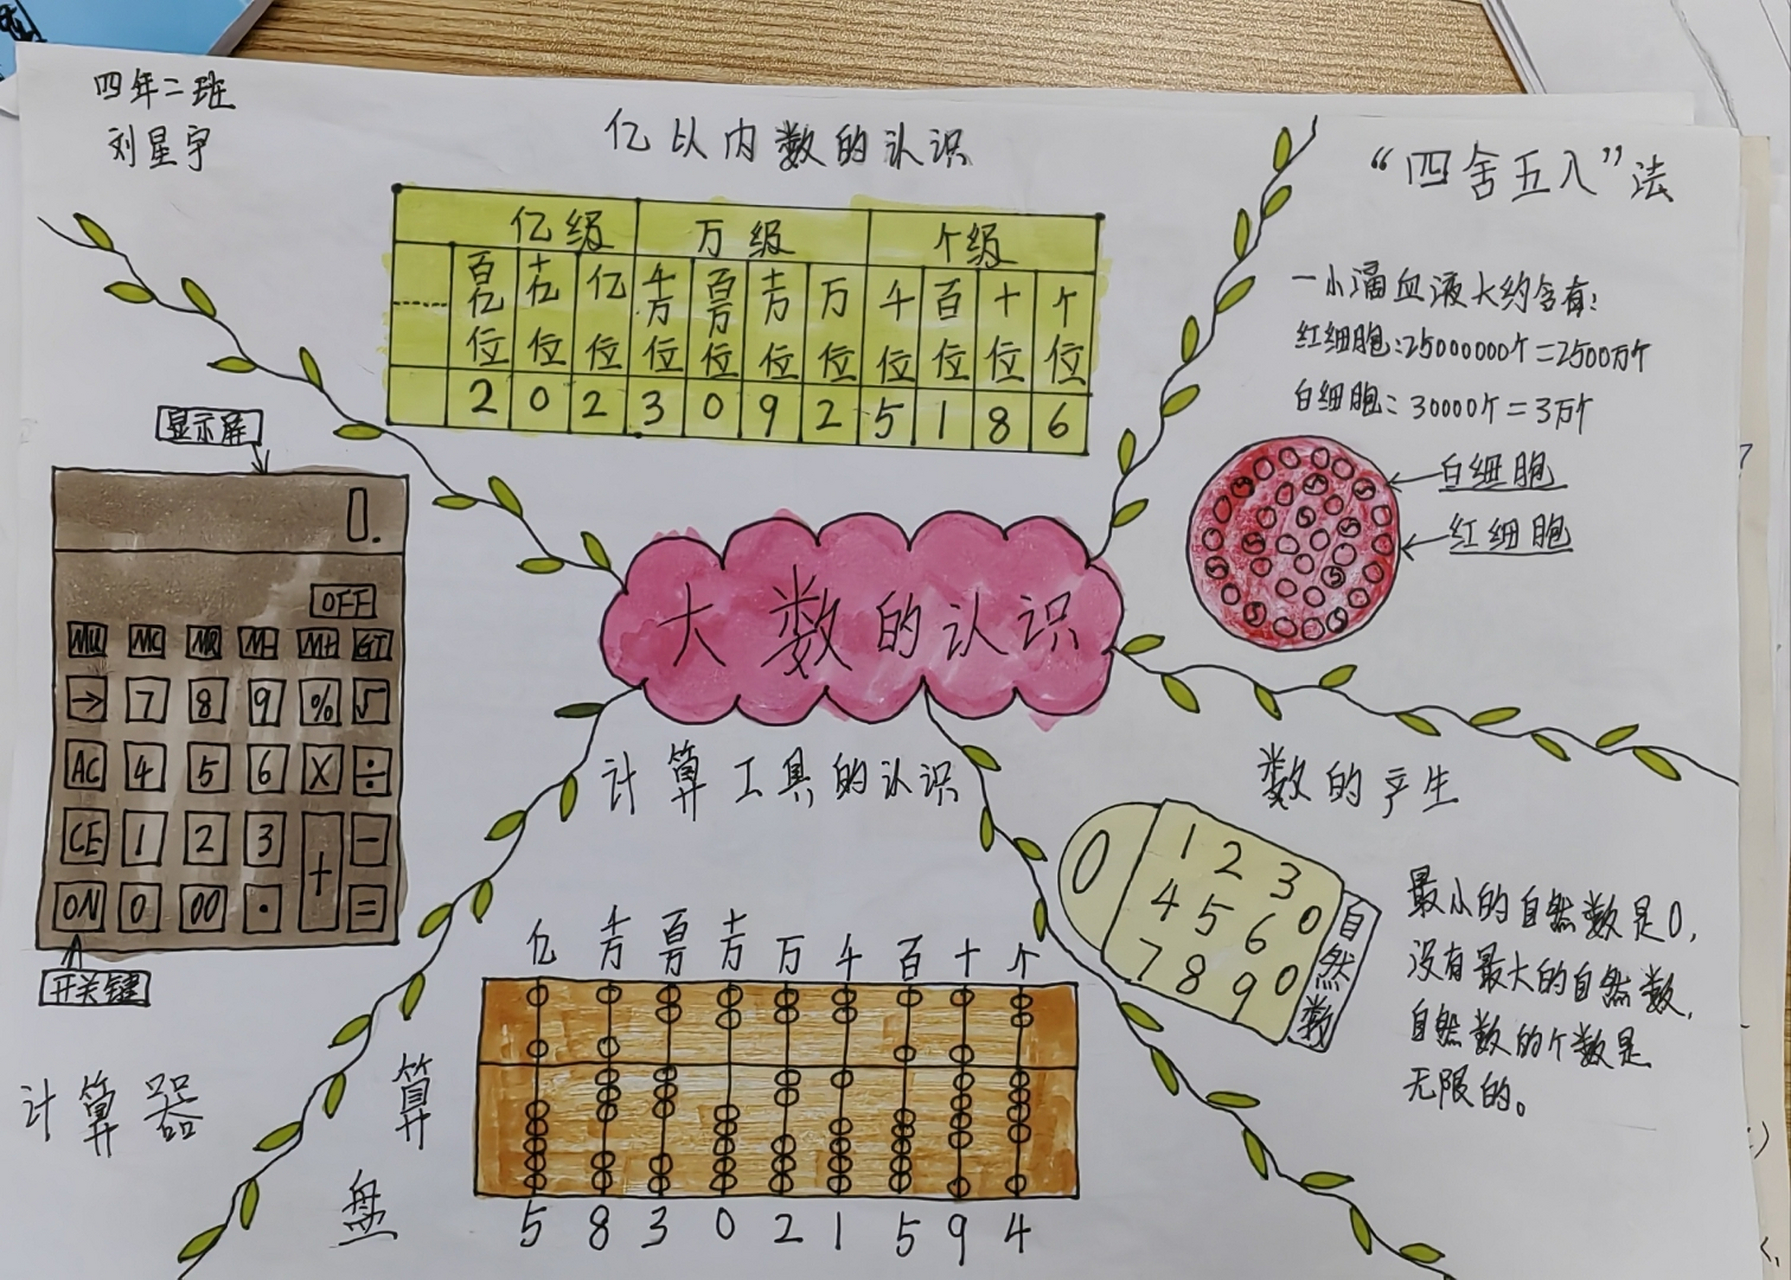 四年二班
刘星宇
亿以内数的认识
亿级 万级 个级
百亿位 十亿位 亿位 千万位 百万位 十万位 万位 千位 百位 十位 个位
2 0 2 3 0 9 2 5 1 8 6
“四舍五入”法
一小滴血液大约含有:
红细胞:25000000个=2500万个
白细胞:30000个=3万个
白细胞
红细胞
显示屏
0.
OFF
MU MC MR M- M+ GT
→ 7 8 9 % √
AC 4 5 6 X ÷
CE 1 2 3 + -
ON 0 00 · =
开关键
计算器
大数的认识
计算工具的认识
亿 千万 百万 十万 万 千 百 十 个
5 8 3 0 2 1 5 9 4
算盘
数的产生
0
1 2 3
4 5 6 0
7 8 9 0
自然数
最小的自然数是0,
没有最大的自然数,
自然数的个数是
无限的。